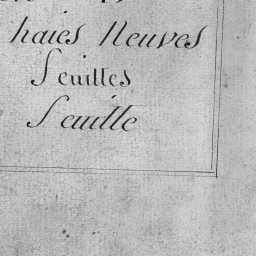 haies Neuves
Feuilles
Feuille